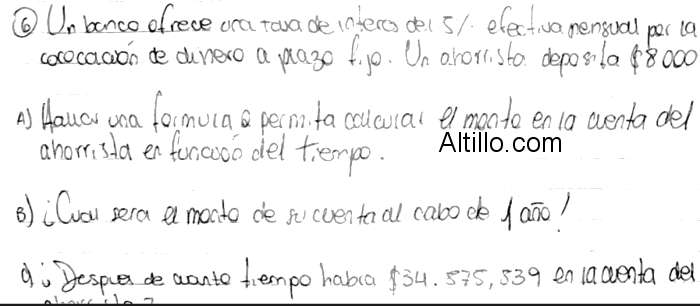 ⑥ Un banco ofrece una tasa de interes del 5% efectiva mensual por la
colocación de dinero a plazo fijo. Un ahorrista deposita $8000
A) Hallar una formula q permita calcular el monto en la cuenta del
ahorrista en función del tiempo.
Altillo.com
B) ¿Cual sera el monto de su cuenta al cabo de 1 año?
c) ¿Despues de cuanto tiempo habra $34.575,539 en la cuenta del